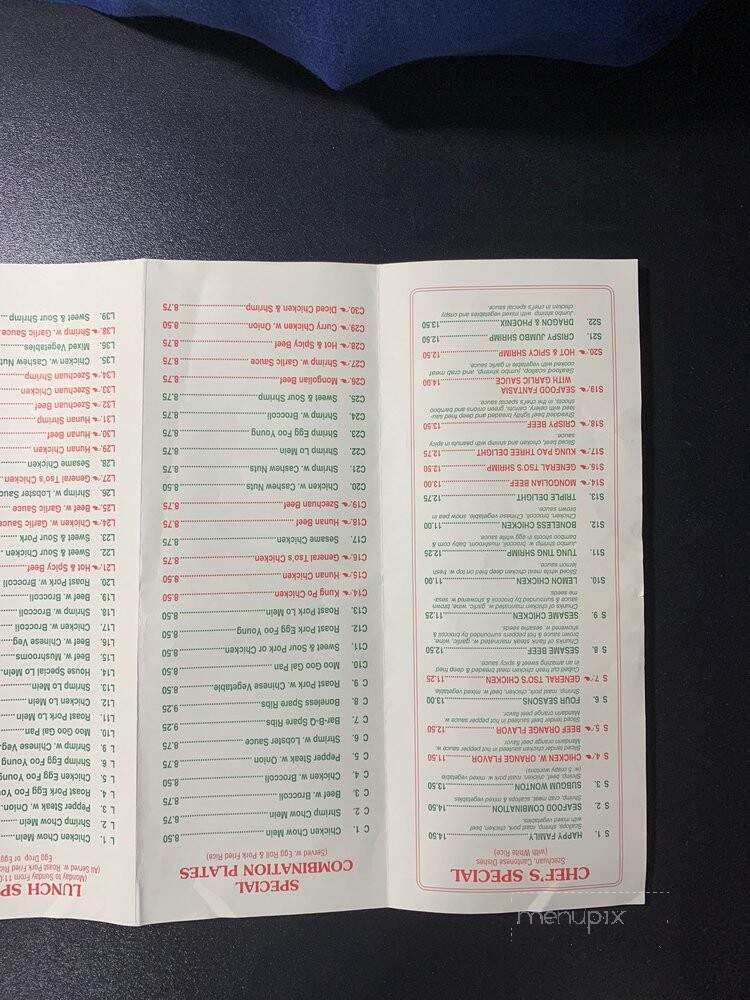 CHEF'S SPECIAL
Szechuan, Cantonese Dishes
(with White Rice)
S 1. HAPPY FAMILY 14.50
Scallops, shrimp, roast pork, chicken, beef
with mixed vegetables.
S 2. SEAFOOD COMBINATION 14.50
Shrimp, crab meat, scallops & mixed vegetables
S 3. SUBGUM WONTON 13.50
Shrimp, beef, chicken, roast pork w. mixed vegetable
(w. 5 crispy wontons)
S 4. CHICKEN W. ORANGE FLAVOR 11.50
Sliced tender chicken sauteed in hot pepper sauce w.
Mandarin orange peel flavor
S 5. BEEF ORANGE FLAVOR 12.50
Sliced tender beef sauteed in hot pepper sauce w.
Mandarin orange peel flavor
S 6. FOUR SEASONS 13.00
Shrimp, roast pork, chicken, beef w. mixed vegetable.
S 7. GENERAL TSO'S CHICKEN 11.25
Cubed cut fresh chicken meat breaded & deep fried
in an amazing sweet & spicy sauce.
S 8. SESAME BEEF 12.50
Chunks of flank steak marinated w. garlic, wine,
brown sauce & hot peppers surrounded by broccoli &
showered w. sesame seeds.
S 9. SESAME CHICKEN 11.25
Chunks of chicken marinated w. garlic, wine, brown
sauce & surrounded by broccoli & showered w. sesa-
me seeds
S10. LEMON CHICKEN 11.00
Sliced white meat chicken deep fried on top w. fresh
lemon sauce
S11. TUNG TING SHRIMP 12.25
Jumbo shrimp w. broccoli, mushroom, baby corn &
bamboo shoots in egg white sauce
S12. BONELESS CHICKEN 11.00
Chicken, broccoli, Chinese vegetable, snow pea in
brown sauce
S13. TRIPLE DELIGHT 12.75
S14. MONGOLIAN BEEF
S15. GENERAL TSO'S SHRIMP 12.50
S17. KUNG PAO THREE DELIGHT 12.75
Sliced beef, chicken and shrimp with peanuts in spicy
sauce.
S18. CRISPY BEEF 12.50
Shredded beef lightly breaded and deep fried
with celery, carrots, green onions and bamboo
shoots, in the chef's special sauce
S19. SEAFOOD FANTASIA
WITH GARLIC SAUCE 14.00
Seafood scallop, jumbo shrimp, and crab meat
cooked with vegetables in garlic sauce.
S20. HOT & SPICY SHRIMP 12.50
S21. CRISPY JUMBO SHRIMP 12.50
S22. DRAGON & PHOENIX 13.50
Jumbo shrimp with mixed vegetables and crispy
chicken in chef's special sauce.
SPECIAL
COMBINATION PLATES
(Served w. Egg Roll & Pork Fried Rice)
C 1. Chicken Chow Mein 8.50
C 2. Shrimp Chow Mein 8.75
C 3. Beef w. Broccoli 8.75
C 4. Chicken w. Broccoli 8.50
C 5. Pepper Steak w. Onion 8.75
C 6. Shrimp w. Lobster Sauce 8.75
C 7. Bar-B-Q Spare Ribs 9.25
C 8. Boneless Spare Ribs 9.25
C 9. Roast Pork w. Chinese Vegetable 8.50
C10. Moo Goo Gai Pan 8.50
C11. Sweet & Sour Pork or Chicken 8.50
C12. Roast Pork Egg Foo Young 8.50
C13. Roast Pork Lo Mein 8.50
C14. Kung Po Chicken 8.50
C15. Hunan Chicken 8.50
C16. General Tso's Chicken 8.75
C17. Sesame Chicken 8.75
C18. Hunan Beef 8.75
C19. Szechuan Beef 8.75
C20. Chicken w. Cashew Nuts 8.50
C21. Shrimp w. Cashew Nuts 8.75
C22. Shrimp Lo Mein 8.75
C23. Shrimp Egg Foo Young 8.75
C24. Shrimp w. Broccoli 8.75
C25. Sweet & Sour Shrimp 8.75
C26. Mongolian Beef 8.75
C27. Shrimp w. Garlic Sauce 8.75
C28. Hot & Spicy Beef 8.75
C29. Curry Chicken w. Onion 8.50
C30. Diced Chicken & Shrimp 8.75
LUNCH SP
(Monday to Sunday From 11:0
(All Served w. Roast Pork Fried Rice
Egg Drop or Egg
L 1. Chicken Chow Mein
L 2. Shrimp Chow Mein
L 3. Pepper Steak w. Onion
L 4. Roast Pork Egg Foo Young
L 5. Chicken Egg Foo Young
L 6. Shrimp Egg Foo Young
L 9. Shrimp w. Chinese Veg
L10. Moo Goo Gai Pan
L11. Roast Pork Lo Mein
L12. Chicken Lo Mein
L13. Shrimp Lo Mein
L14. House Special Lo Mein
L15. Beef w. Mushrooms
L16. Beef w. Chinese Veg
L17. Chicken w. Broccoli
L18. Shrimp w. Broccoli
L19. Beef w. Broccoli
L20. Roast Pork w. Broccoli
L21. Hot & Spicy Beef
L22. Sweet & Sour Chicken
L23. Sweet & Sour Pork
L24. Chicken w. Garlic Sauce
L25. Beef w. Garlic Sauce
L26. Shrimp w. Lobster Sauce
L27. General Tso's Chicken
L28. Sesame Chicken
L29. Hunan Chicken
L30. Hunan Beef
L31. Hunan Shrimp
L32. Szechuan Beef
L33. Szechuan Chicken
L34. Szechuan Shrimp
L35. Chicken w. Cashew Nuts
L36. Mixed Vegetables
L38. Shrimp w. Garlic Sauce
L39. Sweet & Sour Shrimp
menupix